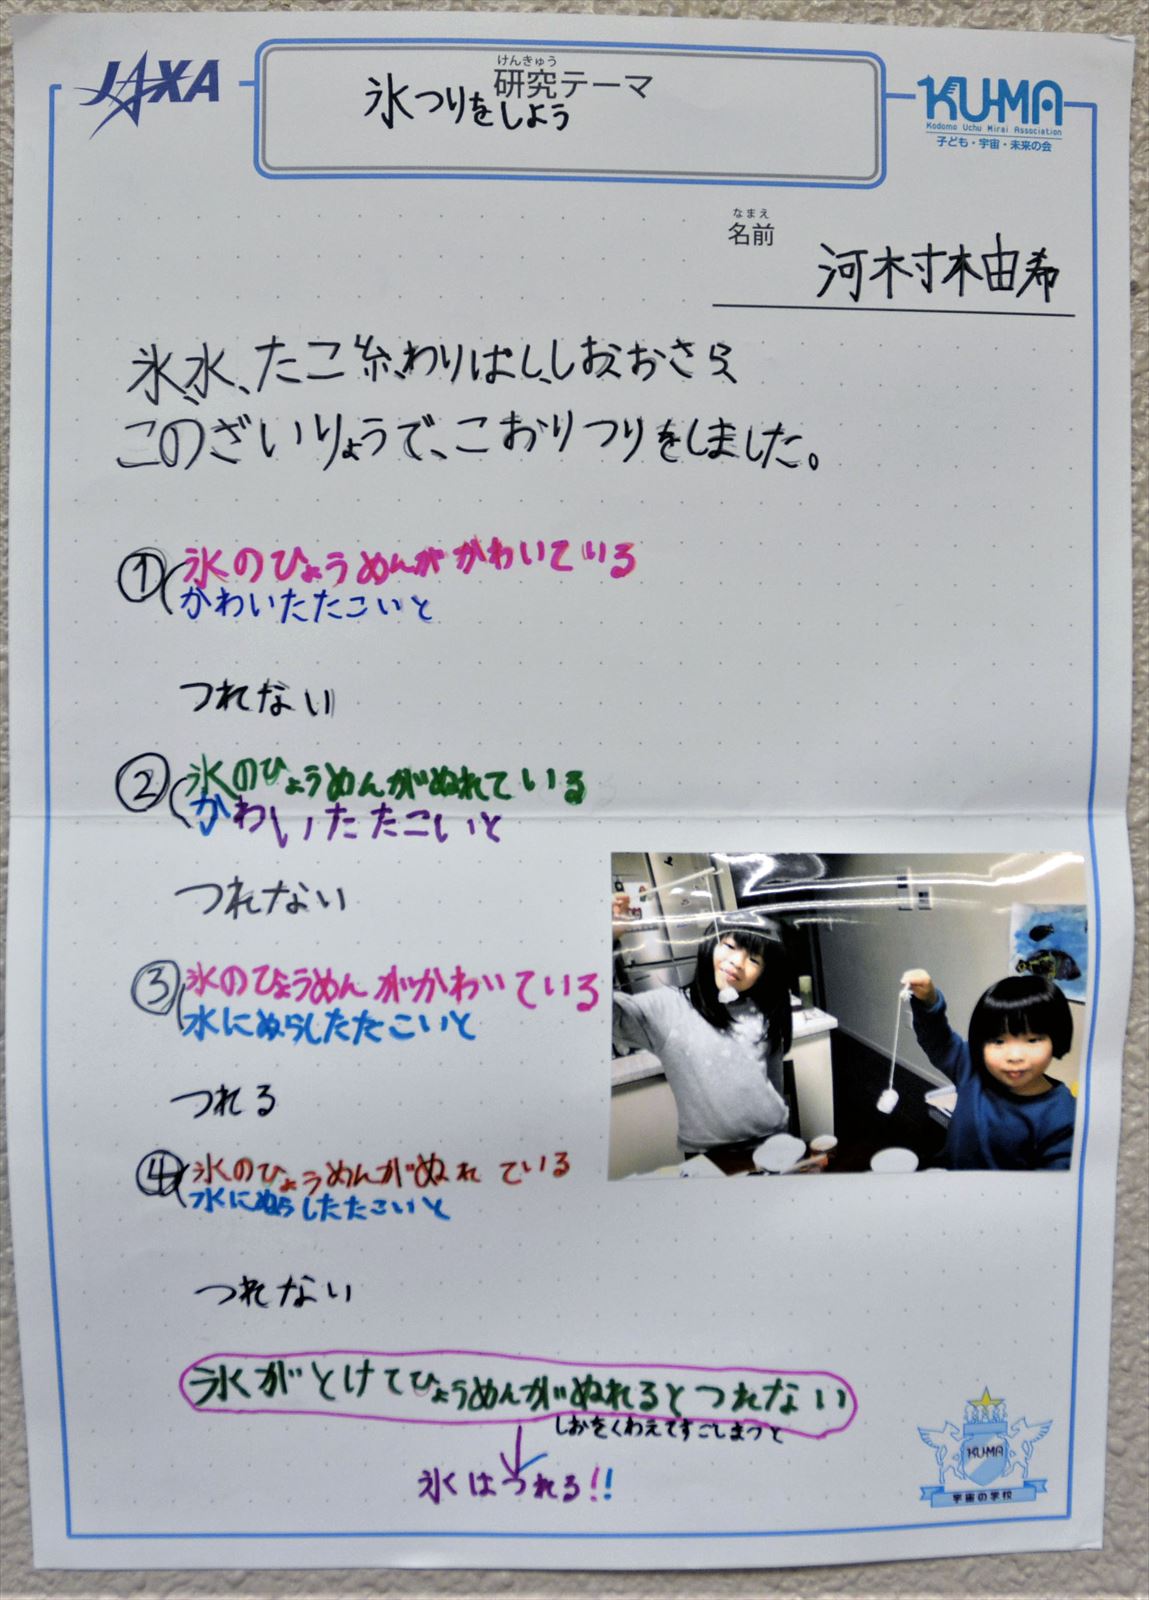 JAXA
けんきゅう
研究テーマ
氷つりをしよう
KU-MA
Kodomo Uchu Mirai Association
子ども・宇宙・未来の会
なまえ
名前
河村柚希
氷、水、たこ糸、わりばし、しお、おさら
このざいりょうで、こおりつりをしました。
① 氷のひょうめんがかわいている
かわいたたこいと
つれない
② 氷のひょうめんがぬれている
かわいたたこいと
つれない
③ 氷のひょうめんがかわいている
水にぬらしたたこいと
つれる
④ 氷のひょうめんがぬれている
水にぬらしたたこいと
つれない
氷がとけてひょうめんがぬれるとつれない
しおをくわえてすこしまつと
↓
氷はつれる!!
KU-MA
宇宙の学校